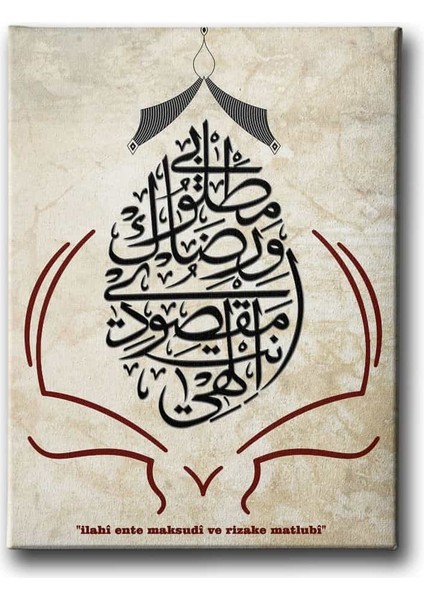 الهي
انت
مقصودي
ورضاك
مطلوبي
"ilahî ente maksudî ve rizake matlubî"